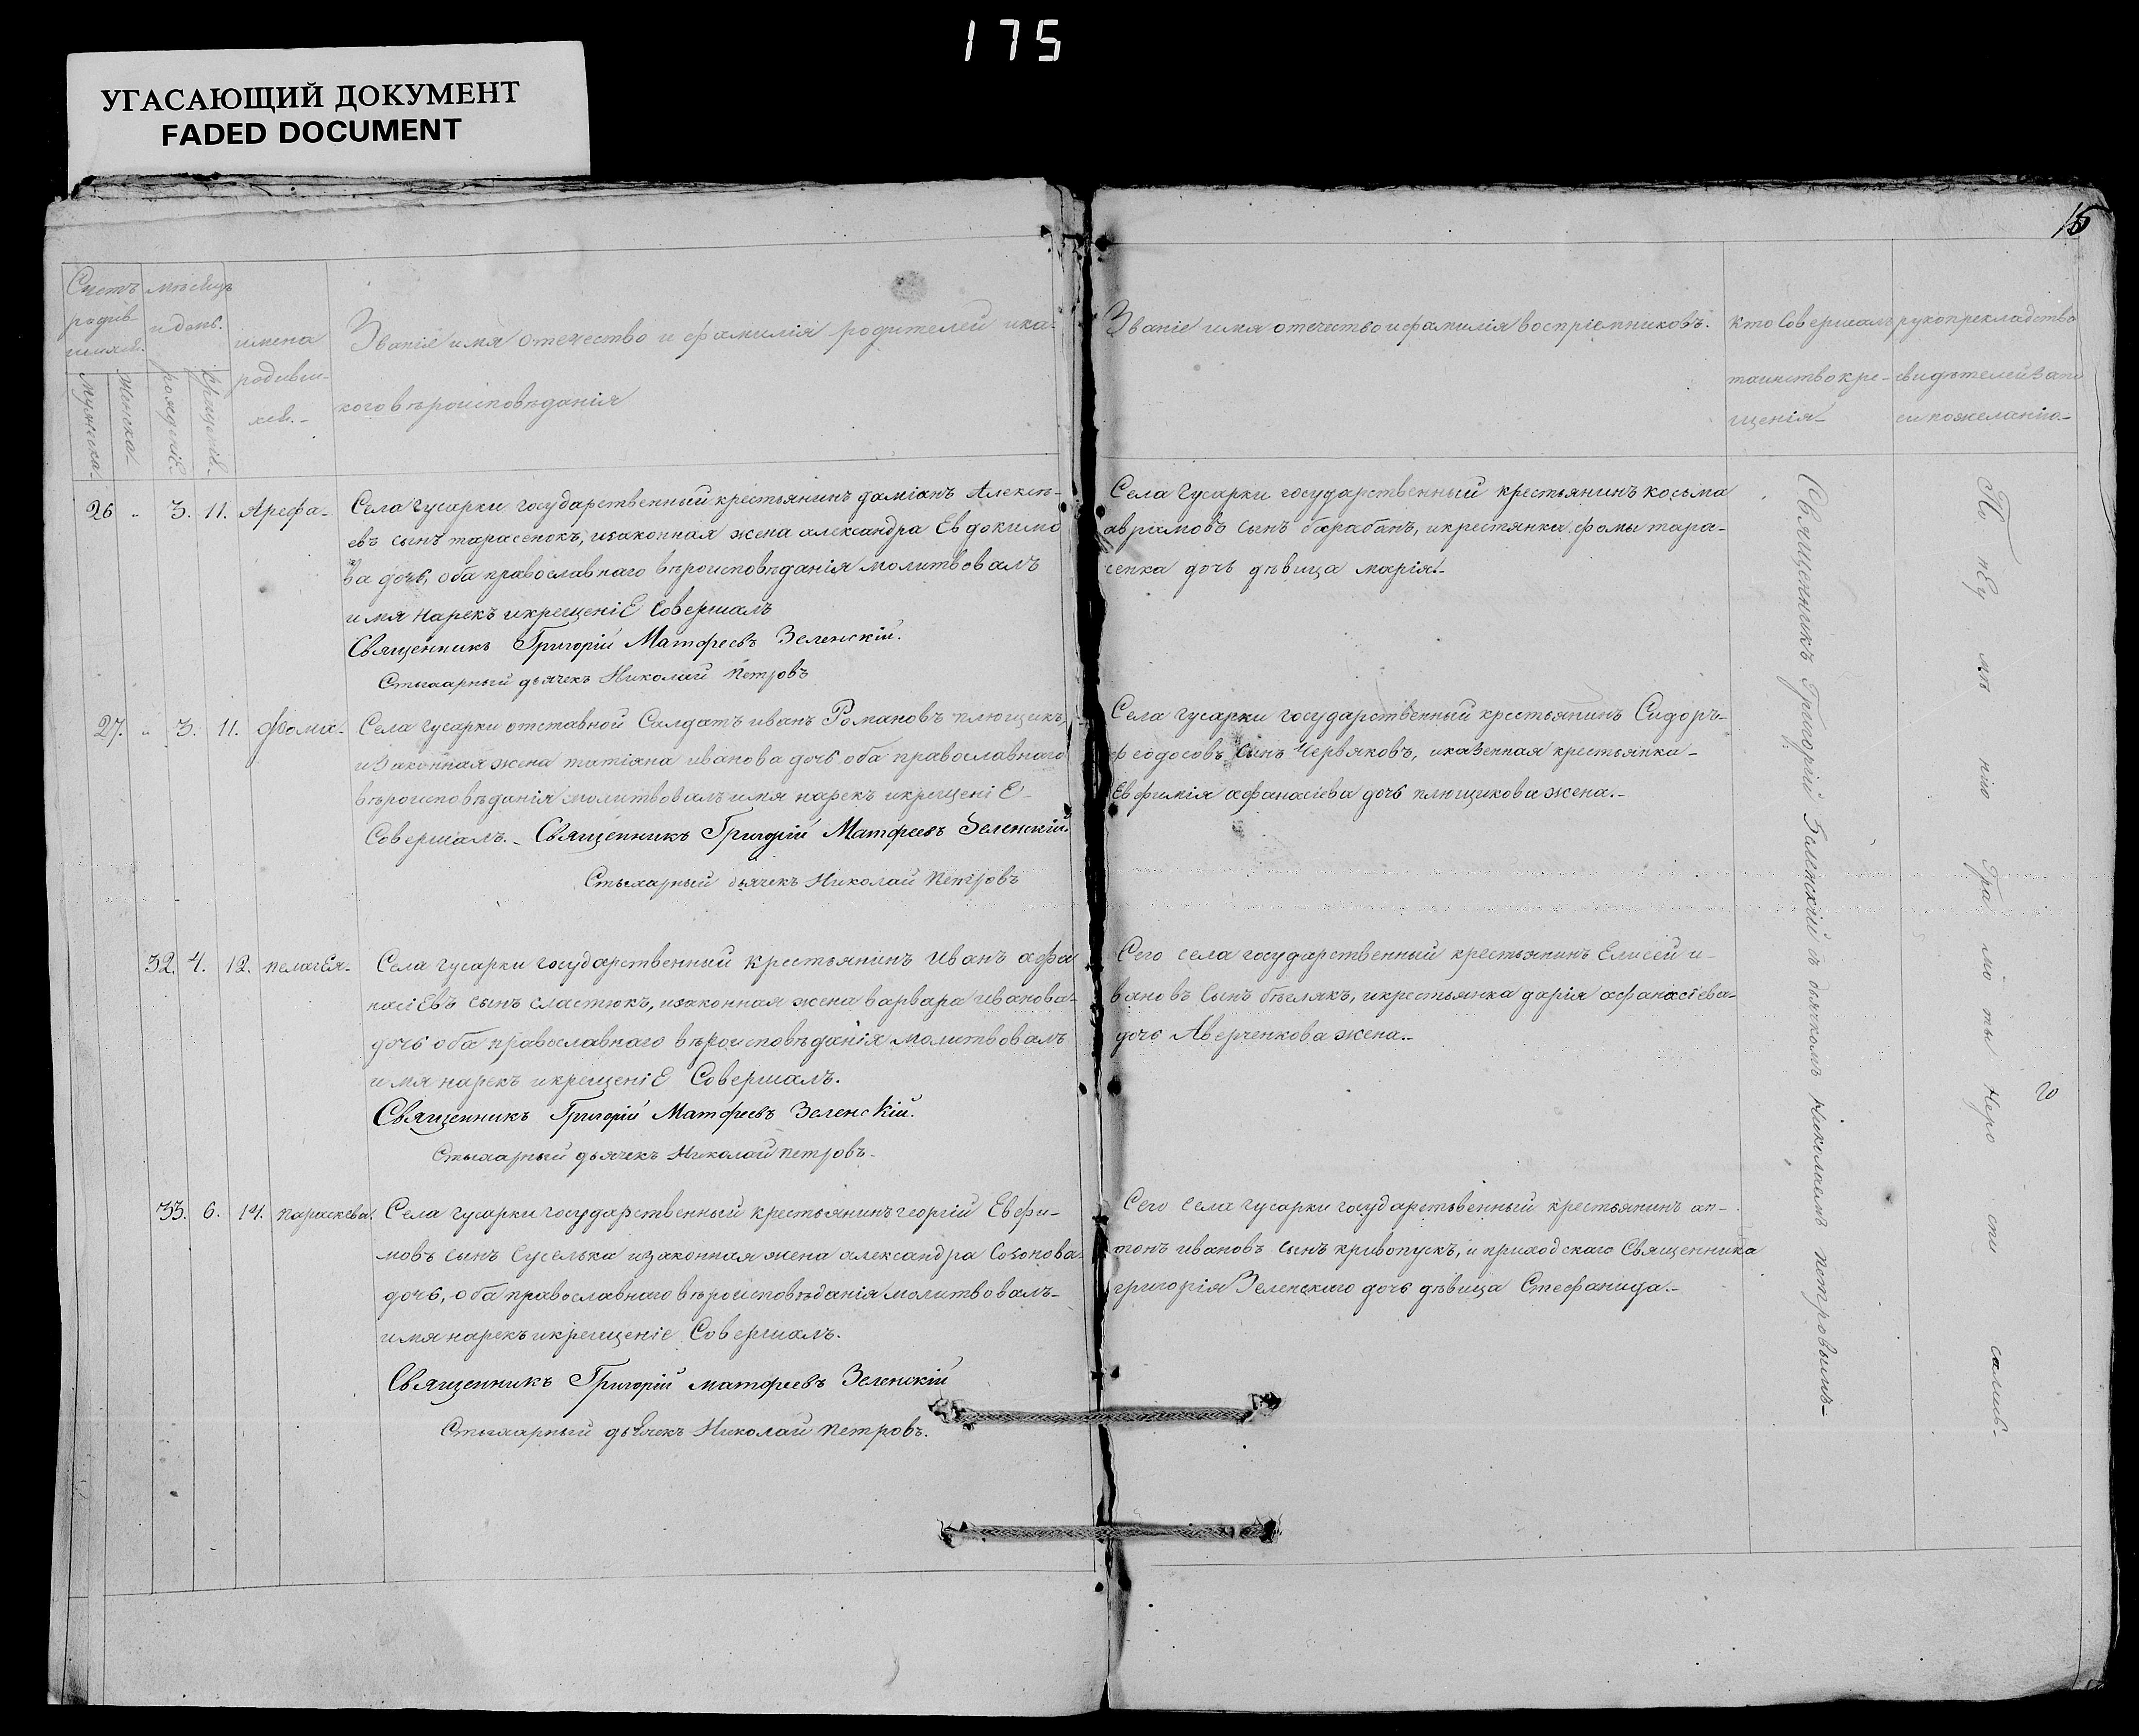 175
УГАСАЮЩИЙ ДОКУМЕНТ
FADED DOCUMENT
15
Счетъ
родив
шихся.
мѣсяцъ
и день.
Мужеска
Женска
рожденіе
крещеніе
имена
родивш-
хся.
Званіе имя отечество и фамилія родителей и ка-
кого вѣроисповѣданія
Званіе имя отечество и фамилія воспріемниковъ.
кто совершалъ
таинство кре-
щенія
рукоприкладство
свидѣтелей запи
си по желанію
26 " 3. 11. Арефа
Села гусарки государственный крестьянинъ даміанъ Алексѣ-
евъ сынъ тарасенокъ, изаконная жена александра Евдокимо
ва дочь, оба православнаго вѣроисповѣданія молитвовалъ
имя нарекъ икрещеніЕ совершалъ
Священникъ Григорій Матфеевъ Зеленскій.
Стыхарный дьячекъ Николай Петровъ
Села гусарки государственный крестьянинъ косьма
аврамовъ сынъ барабанъ, икрестянка фомы тара-
сенка дочь дѣвица марія.
27. " 3. 11. Фома
Села гусарки отставной Салдатъ иванъ Романовъ плющикъ,
изаконная жена татіяна иванова дочь оба православнаго
вѣроисповѣданія молитвовалъ имя нарекъ икрещеніЕ
Совершалъ. Священникъ Григорій Матфеевъ Зеленскій.
Стыхарный дьячекъ Николай Петровъ
Села гусарки государственный крестьянинъ Сидоръ
феодосовъ сынъ Червяковъ, иказенная крестьянка
Евфимія афанасіева дочь плющикова жена.
32. 4. 12. пелагЕя
Села гусарки государственный крестьянинъ Иванъ афа
насіЕвъ сынъ сластюкъ, изаконная жена варвара иванова
дочь оба православнаго вѣроисповѣданія молитвовалъ
имя нарекъ икрещеніЕ Совершалъ.
Священникъ Григорій Матфеевъ Зеленскій.
Стыхарный дьячекъ Николай петровъ
Сего села государственный крестьянинъ Елисей и-
вановъ сынъ бѣлякъ, икрестьянка дарія афанасіева
дочь Аверченкова жена.
33. 6. 14. параскева.
Села гусарки государственный крестьянинъ георгій Евфи-
мовъ сынъ Суселька изаконная жена александра Созонова
дочь, оба православнаго вѣроисповѣданія молитвовалъ
имя нарекъ икрещеніе Совершалъ.
Священникъ Григорій матфеевъ Зеленскій
Стыхарный дьячекъ Николай петровъ.
Сего села гусарки государственный крестьянинъ ан-
тонъ ивановъ сынъ кривопускъ, и приходскаго Священника
григорія Зеленскаго дочь дѣвица Стефанида.
Священникъ Григорій Зеленскій съ дьячкомъ Николаемъ петровымъ
По нЕу мѣ нію Гра мо ты Неро спи салив.
20